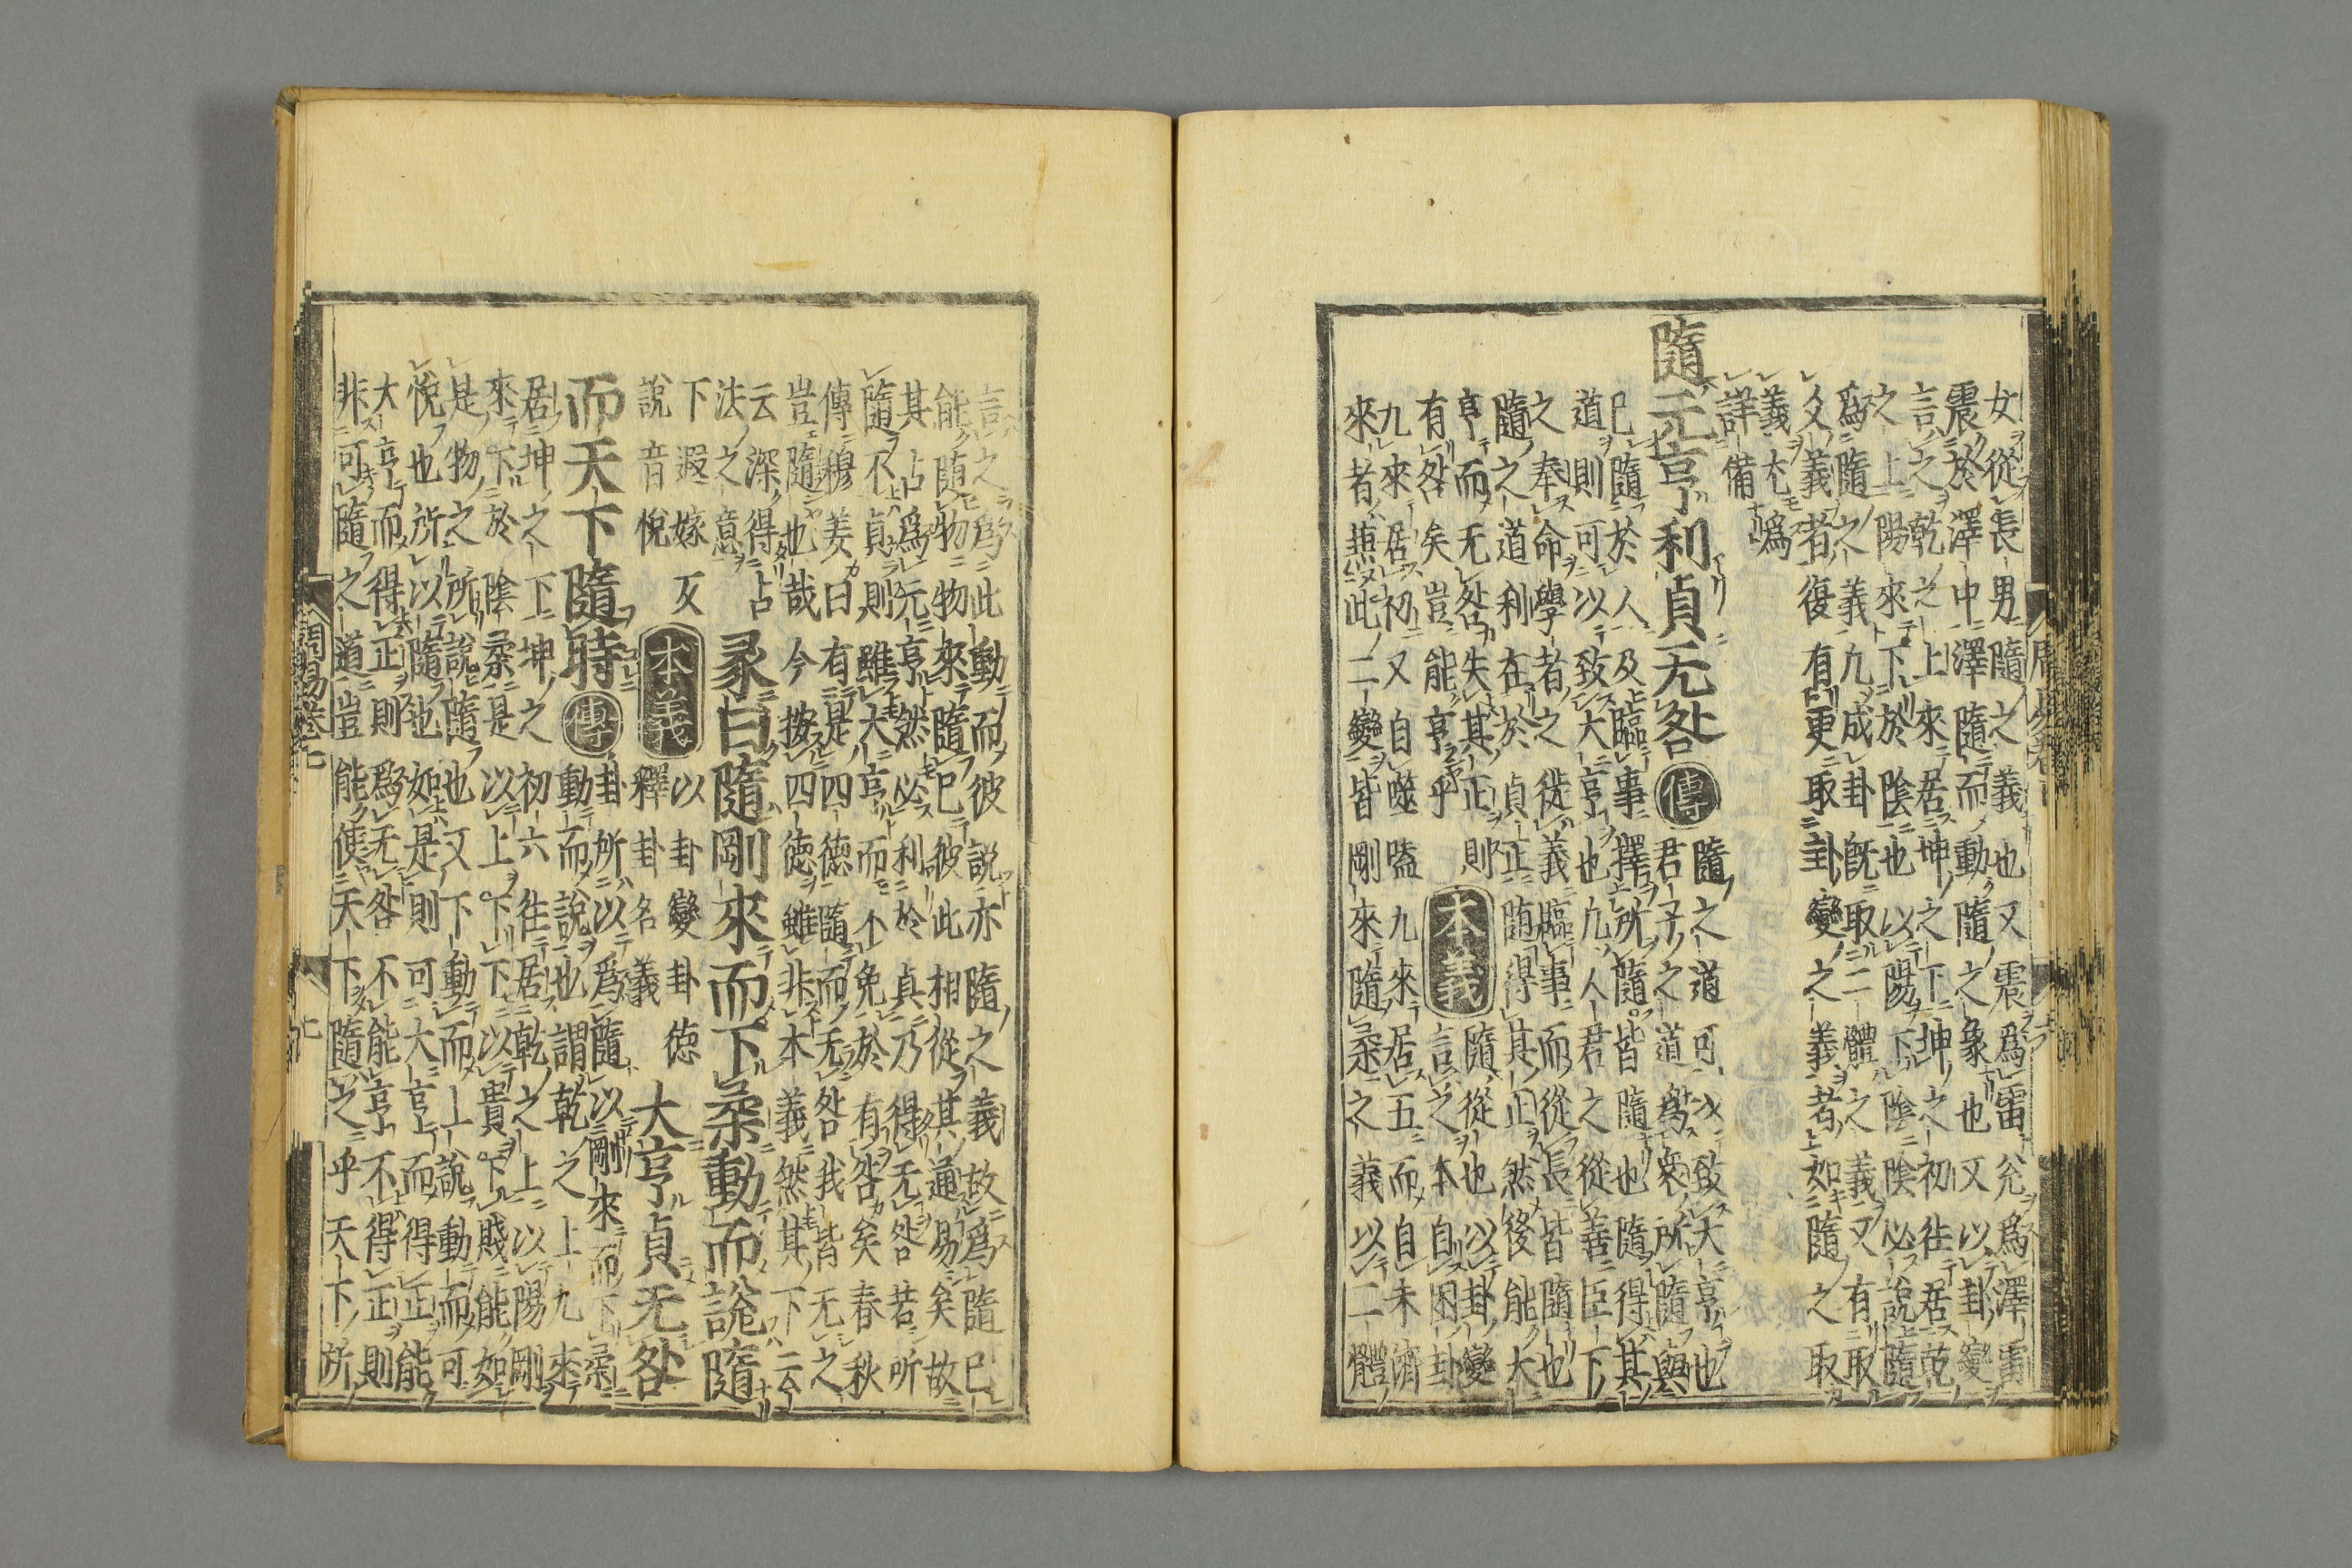 女從長男隨之義也又震爲雷兌爲澤雷
震於澤中澤隨而動隨之象也又以卦變
言之乾之上來居坤之下坤之初往居乾
之上陽來下於陰也以陽下陰陰必說隨
爲隨之義凡成卦既取二體之義又有取
爻義者復有更取卦變之義者如隨之取
義尤爲
詳備
隨元亨利貞无咎傳隨之道可以致大亨也
君子之道爲衆所隨與
己隨於人及臨事擇所隨皆隨也隨得其
道則可以致大亨也凡人君之從善臣下
之奉命學者之徙義臨事而從長皆隨也
隨之道利在於貞正隨得其正然後能大
亨而无咎失其正則
有咎矣豈能亨乎
本義
隨從也以卦變
言之本自困卦
九來居初又自噬嗑九來居五而自未濟
來者兼此二變皆剛來隨柔之義以二體
周易卷七
言之爲此動而彼說亦隨之義故爲隨己
能隨物物來隨己彼此相從其通易矣故
其占爲元亨然必利於貞乃得无咎若所
隨不貞則雖大亨而不免於有咎矣春秋
傳穆姜曰有是四德隨而无咎我皆无之
豈隨也哉今按四德雖非本義然其下云
云深得占
法之意
彖曰隨剛來而下柔動而說隨
下遐嫁反
說音悅
本義
以卦變卦德
釋卦名義
大亨貞无咎
而天下隨時傳卦所以爲隨以剛來而下柔
動而說也謂乾之上九來
居坤之下坤之初六往居乾之上以陽剛
來下於陰柔是以上下下以貴下賤能如
是物之所說隨也又下動而上說動而可
悅也所以隨也如是則可大亨而得正能
大亨而得正則爲无咎不能亨不得正則
非可隨之道豈能使天下隨之乎天下所
周易卷七
七